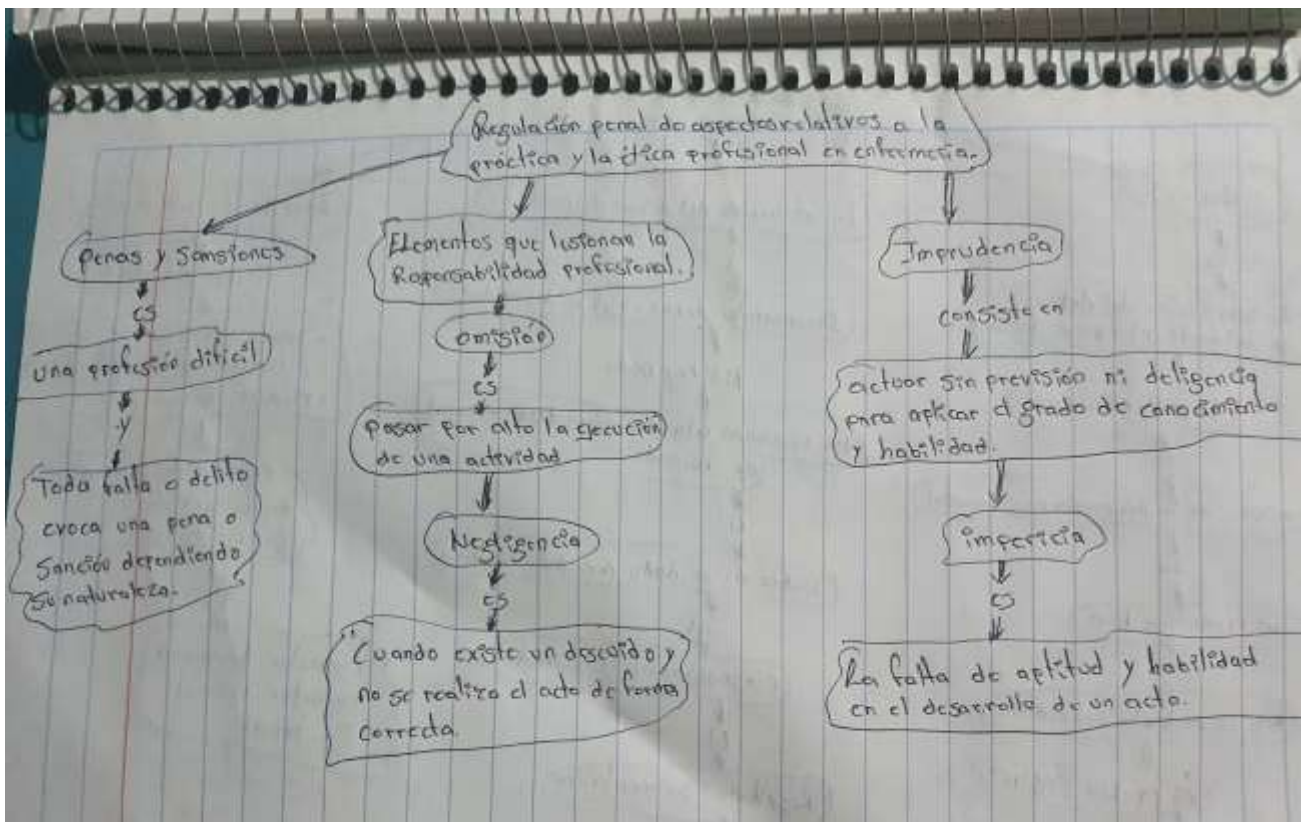 Regulación penal de aspectos relativos a la
práctica y la ética profesional en enfermería.
Penas y Sansiones
es
una profesión dificil
y
Toda falta o delito
evoca una pena o
Sanción dependiendo
su naturaleza.
Elementos que lesionan la
Responsabilidad profesional.
omisión
es
Pasar por alto la ejecución
de una actividad
Negligencia
es
Cuando existe un descuido y
no se realiza el acto de forma
correcta.
Imprudencia
consiste en
actuar sin previsión ni deligencia
para aplicar el grado de conocimiento
y habilidad.
impericia
es
La falta de aptitud y habilidad
en el desarrollo de un acto.